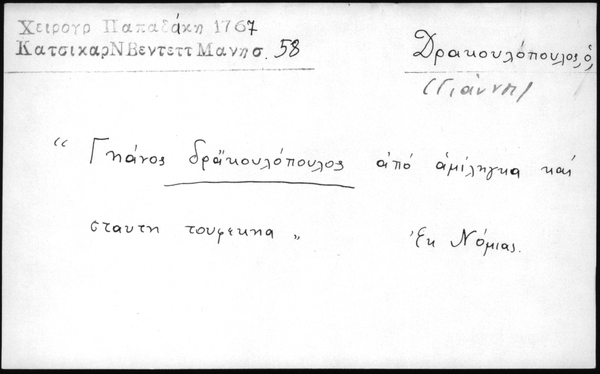 Χειρογρ Παπαδάκη 1767
ΚατσικαρΝΒεντεττΜανησ. 58
Δρακουλόπουλος, ὁ,
(Γιάννη)
“ Γηάνος δράκουλόπουλος ἀπό ἁμίληγκα καί
σταυτη τουφεκηα „ Ἐκ Νόμιας.